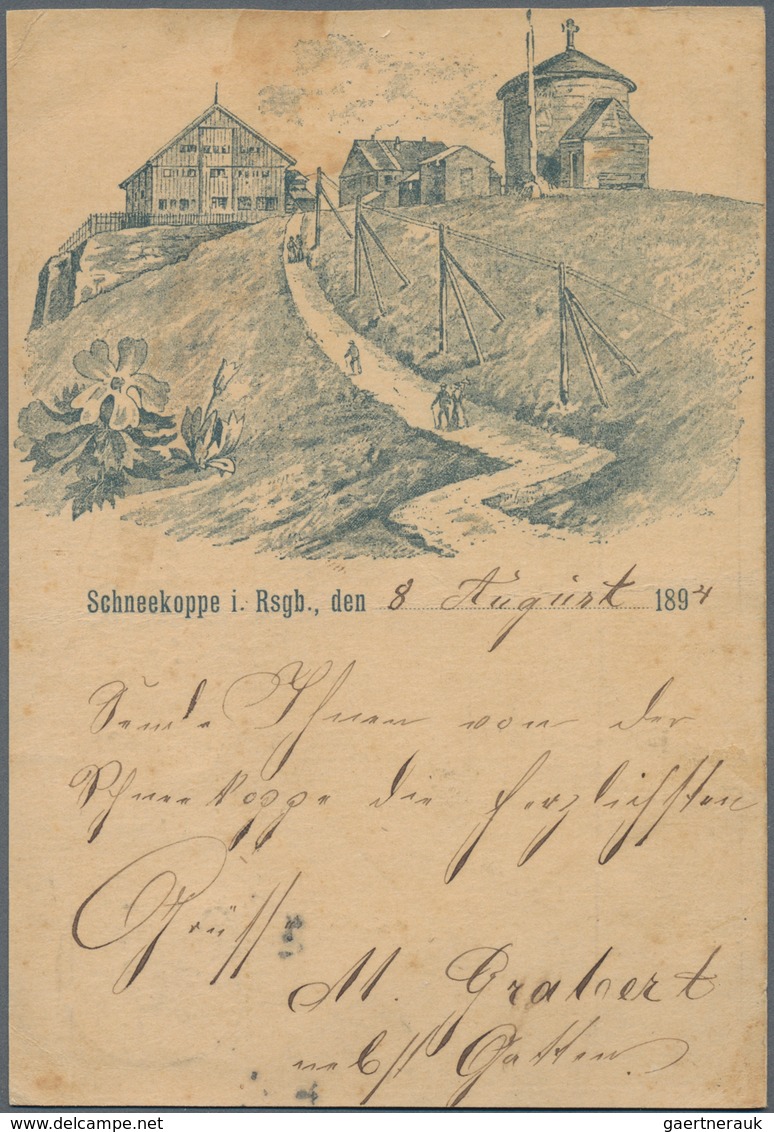 Schneekoppe i. Rsgb., den 8 August 1894
Sende Ihnen von der
Schneekoppe die herzlichsten
Grüsse
M. Grabert
nebst Gatten.
gaertnerauk